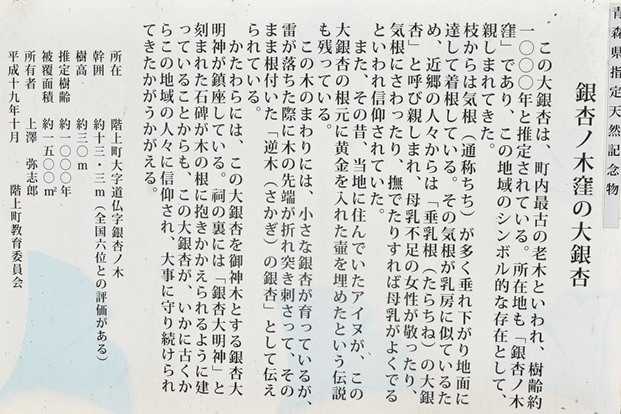 青森県指定天然記念物
銀杏ノ木窪の大銀杏
この大銀杏は、町内最古の老木といわれ、樹齢約
一〇〇〇年と推定されている。所在地も「銀杏ノ木
窪」であり、この地域のシンボル的な存在として、
親しまれてきた。
枝からは気根（通称ちち）が多く垂れ下がり地面に
達して着根している。その気根が乳房に似ているた
め、近郷の人々からは「垂乳根（たらちね）の大銀
杏」と呼び親しまれ、母乳不足の女性が敬ったり、
気根にさわったり、撫でたりすれば母乳がよくでる
といわれ信仰されていた。
また、その昔、当地に住んでいたアイヌが、この
大銀杏の根元に黄金を入れた壷を埋めたという伝説
も残っている。
この木のまわりには、小さな銀杏が育っているが、
雷が落ちた際に木の先端が折れ突き刺さって、その
まま根付いた「逆木（さかぎ）の銀杏」として伝え
られている。
かたわらには、この大銀杏を御神木とする銀杏大
明神が鎮座している。祠の裏には「銀杏大明神」と
刻まれた石碑が木の根に抱きかかえられるように建
っていることからも、この大銀杏が、いかに古くか
らこの地域の人々に信仰され、大事に守り続けられ
てきたかがうかがえる。
所在　階上町大字道仏字銀杏ノ木
幹囲　約十三・三m（全国六位との評価がある）
樹高　約三〇m
推定樹齢　約一〇〇〇年
被覆面積　約一五〇〇㎡
所有者　上澤　弥志郎
平成十九年十月　階上町教育委員会